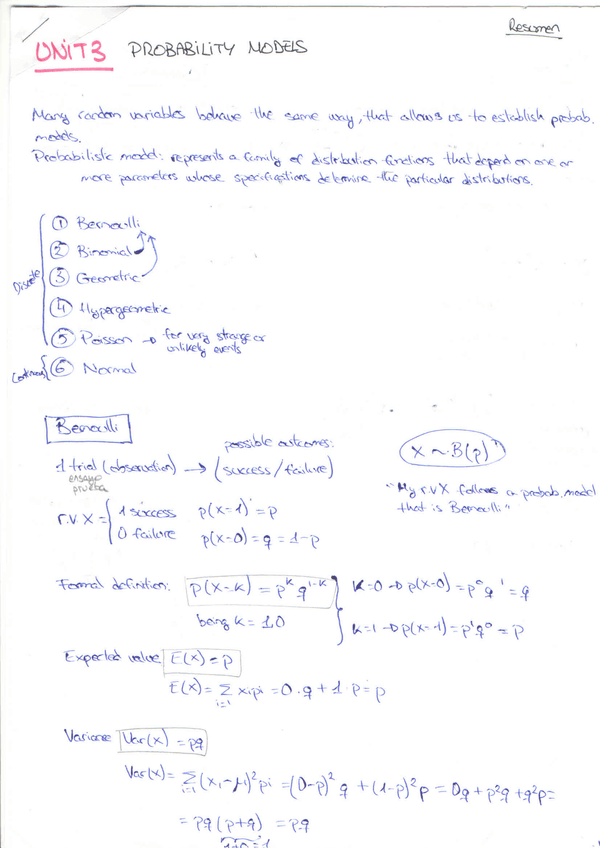 Resumen
UNIT 3 PROBABILITY MODELS
Many random variables behave the same way, that allows us to establish probab.
models.
Probabilistic model: represents a family of distribution functions that depend on one or
more parameters whose specifications determine the particular distributions.
Discrete
① Bernoulli
② Binomial
③ Geometric
④ Hypergeometric
⑤ Poisson → for very strange or
unlikely events
Continuous
⑥ Normal
Bernoulli
possible outcomes:
1 trial (observation) → (success/failure)
ensayo
prueba
X ~ B(p)
"My r.v X follows a probab. model
that is Bernoulli"
r.v. X = { 1 success p(X=1) = p
0 failure p(X=0) = q = 1-p
Formal definition: p(X=k) = p^k q^{1-k} } k=0 → p(X=0) = p^0 q^1 = q
being k = 1,0 k=1 → p(X=1) = p^1 q^0 = p
Expected value E(X) = p
E(X) = Σ_{i=1} xi pi = 0·q + 1·p = p
Variance Var(X) = pq
Var(X) = Σ_{i=1} (xi - μ)² pi = (0-p)² q + (1-p)² p = 0q + p²q + q²p =
= pq (p+q) = pq